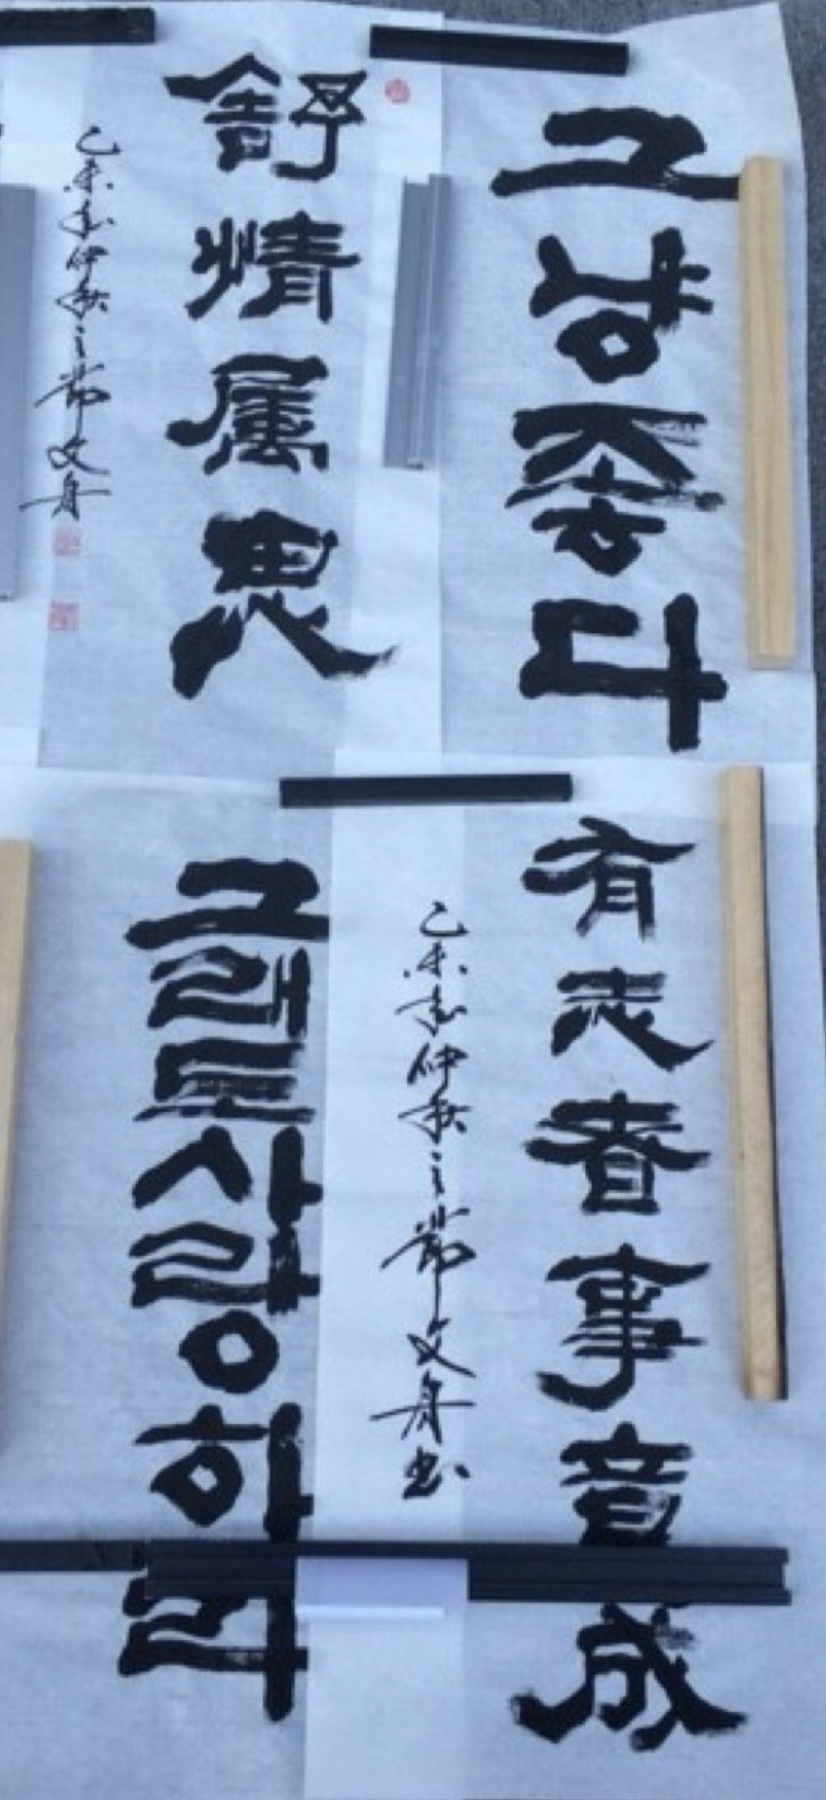 그냥좋다
舒情属思
乙未仲秋之節文舟
有志者事竟成
乙未仲秋之節文舟书
그래도사랑하라